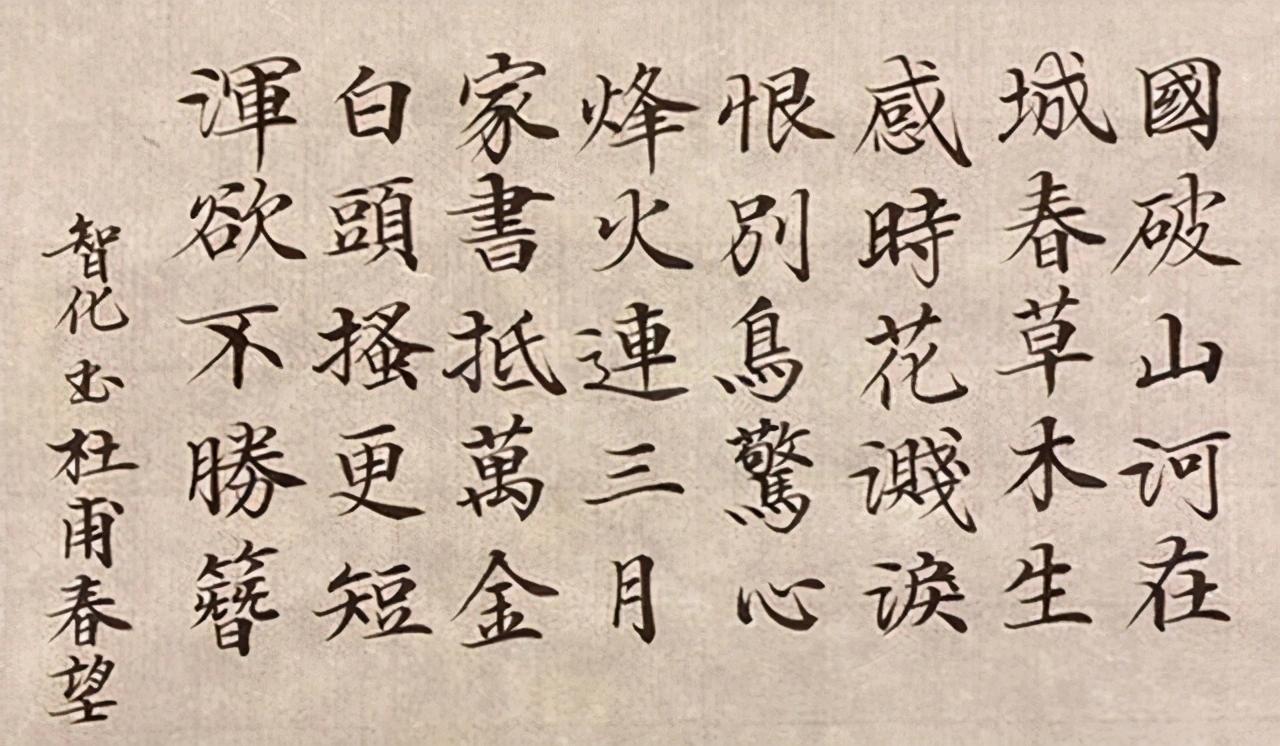 國破山河在
城春草木生
感時花濺淚
恨別鳥驚心
烽火連三月
家書抵萬金
白頭搔更短
渾欲不勝簪
智化书杜甫春望